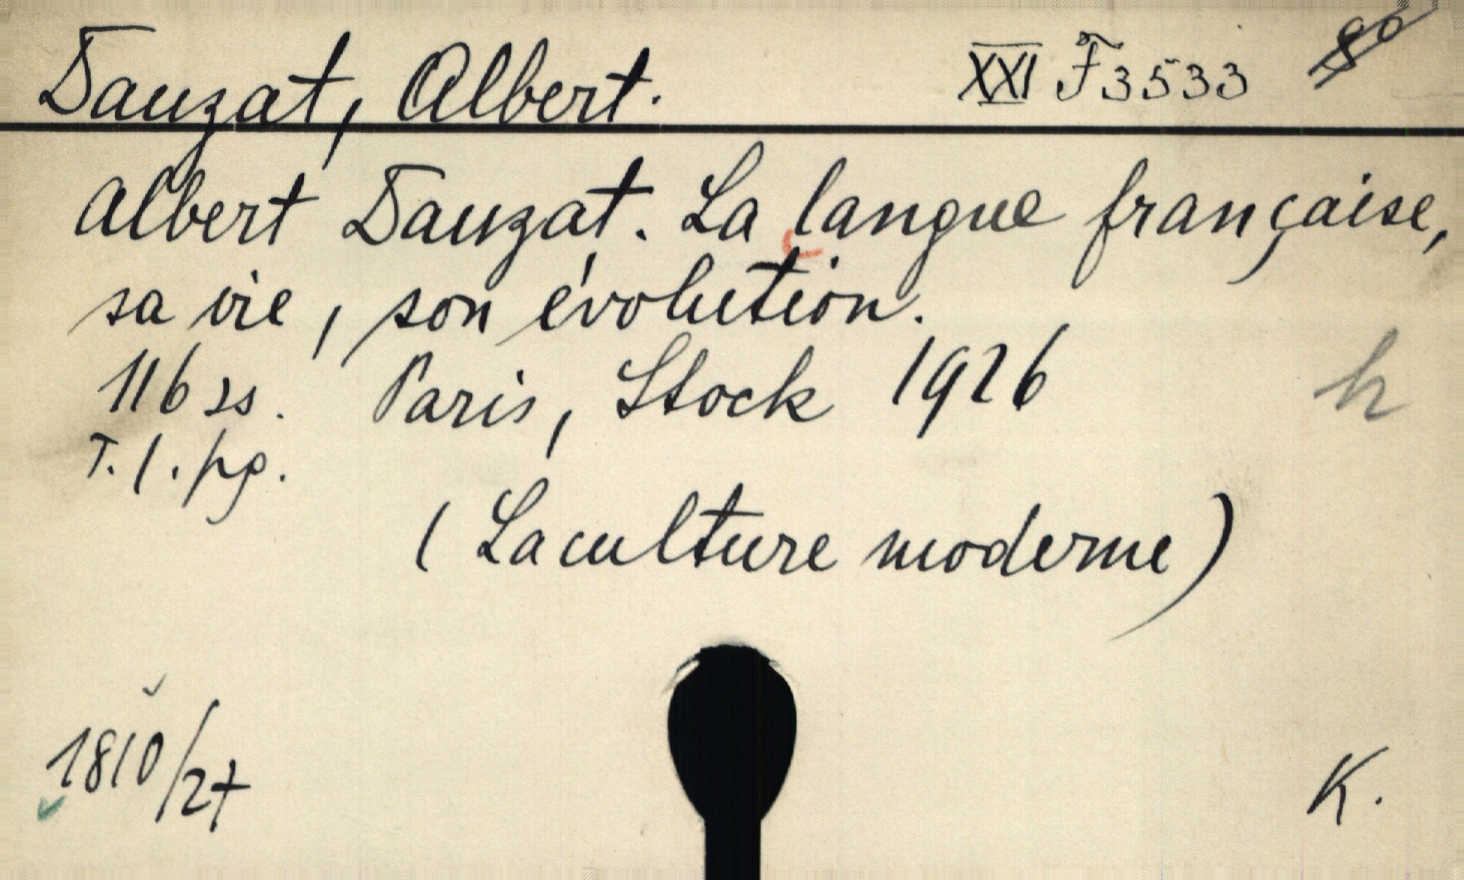 Dauzat, Albert. XXI F 3533 8°
Albert Dauzat. La langue française,
sa vie, son évolution.
116 ss. Paris, Stock 1926 h
T. 1. pg.
(La culture moderne)
1810/27
K.